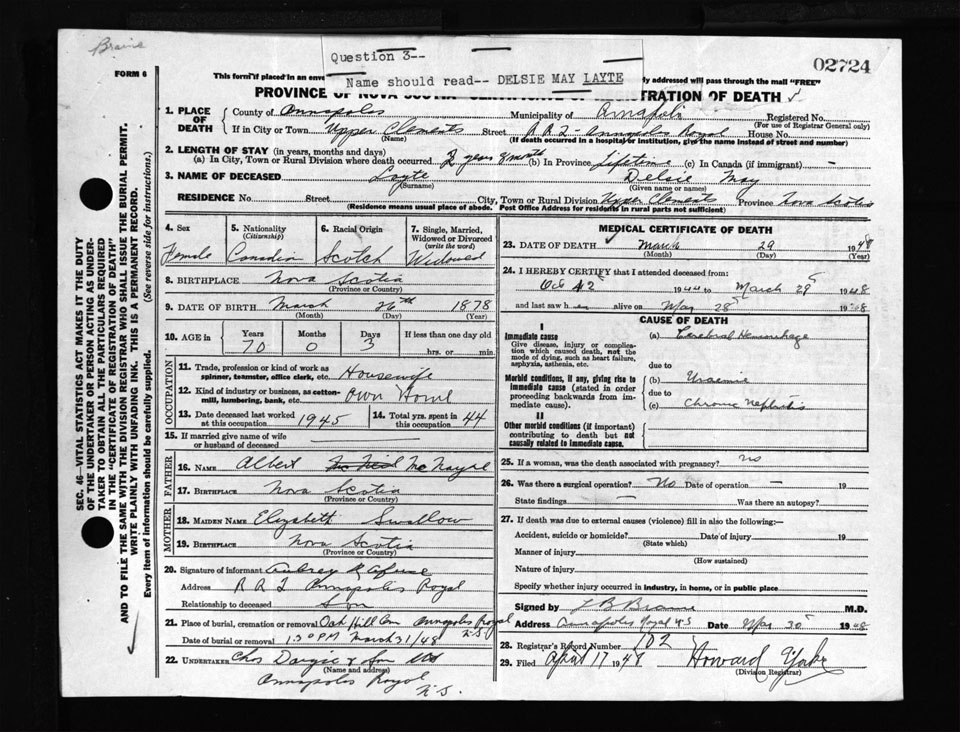 Braine
Question 3--
02724
FORM 6
This form if placed in an enve
Name should read-- DELSIE MAY LAYTE
y addressed will pass through the mail "FREE"
PROVINCE OF NOVA SCOTIA CERTIFICATE OF REGISTRATION OF DEATH
1. PLACE OF DEATH
County of Annapolis Municipality of Annapolis Registered No.
(For use of Registrar General only)
If in City or Town Upper Clements Street R R 2 - Annapolis Royal House No.
(Name) (If death occurred in a hospital or institution, give the name instead of street and number)
2. LENGTH OF STAY (in years, months and days)
(a) In City, Town or Rural Division where death occurred 2 years month (b) In Province Lifetime (c) In Canada (if immigrant) —
3. NAME OF DECEASED Layte Delsie May
(Surname) (Given name or names)
RESIDENCE No. Street City, Town or Rural Division Upper Clements Province Nova Scotia
(Residence means usual place of abode. Post Office Address for residents in rural parts not sufficient)
4. Sex 5. Nationality 6. Racial Origin 7. Single, Married,
(Citizenship) Widowed or Divorced
(write the word)
Female Canadian Scotch Widowed
8. BIRTHPLACE Nova Scotia
(Province or Country)
9. DATE OF BIRTH March 26th 1878
(Month) (Day) (Year)
10. AGE in Years Months Days If less than one day old
70 0 3 hrs. or min.
OCCUPATION
11. Trade, profession or kind of work as
spinner, teamster, office clerk, etc. Housewife
12. Kind of industry or business, as cotton-
mill, lumbering, bank, etc. Own Home
13. Date deceased last worked
at this occupation 1945
14. Total yrs. spent in
this occupation 44
15. If married give name of wife
or husband of deceased
FATHER
16. NAME Albert McNayre
17. BIRTHPLACE Nova Scotia
(Province or Country)
MOTHER
18. MAIDEN NAME Elizabeth Swallow
19. BIRTHPLACE Nova Scotia
(Province or Country)
20. Signature of informant Aubrey R
Address R R 2 Annapolis Royal
Relationship to deceased Son
21. Place of burial, cremation or removal Oak Hill Cem Annapolis Royal N.S.
Date of burial or removal 1:30 PM March 31/48
22. UNDERTAKER Chas Dargie & Son Ltd
(Name and address)
Annapolis Royal
N.S.
MEDICAL CERTIFICATE OF DEATH
23. DATE OF DEATH March 29 1948
(Month) (Day) (Year)
24. I HEREBY CERTIFY that I attended deceased from:
Oct 1944 to March 29 1948
and last saw her alive on 28 1948
CAUSE OF DEATH
I
Immediate cause (a) Cerebral Hemorrhage
Give disease, injury or compli-
cation which caused death, not the
mode of dying, such as heart failure,
asphyxia, asthenia, etc.
due to
Morbid conditions, if any, giving rise to
immediate cause (stated in order
proceeding backwards from im-
mediate cause).
(b) Uraemia
due to
(c) Chronic Nephritis
II
Other morbid conditions (if important)
contributing to death but not
causally related to immediate cause.
25. If a woman, was the death associated with pregnancy? No
26. Was there a surgical operation? No Date of operation — 19
State findings — Was there an autopsy?
27. If death was due to external causes (violence) fill in also the following:—
Accident, suicide or homicide? Date of injury 19
(State which)
Manner of injury
(How sustained)
Nature of injury
Specify whether injury occurred in industry, in home, or in public place
Signed by L B Braine M.D.
Address Annapolis Royal N.S Date 30 1948
28. Registrar's Record Number 102
29. Filed April 17 1948 Howard Yorke
(Division Registrar)
SEC. 46—VITAL STATISTICS ACT MAKES IT THE DUTY
OF THE UNDERTAKER OR PERSON ACTING AS UNDER-
TAKER TO OBTAIN ALL THE PARTICULARS REQUIRED
IN THE "CERTIFICATE OF REGISTRATION OF DEATH"
AND TO FILE THE SAME WITH THE DIVISION REGISTRAR WHO SHALL ISSUE THE BURIAL PERMIT.
WRITE PLAINLY WITH UNFADING INK. THIS IS A PERMANENT RECORD.
Every item of information should be carefully supplied. (See reverse side for instructions.)